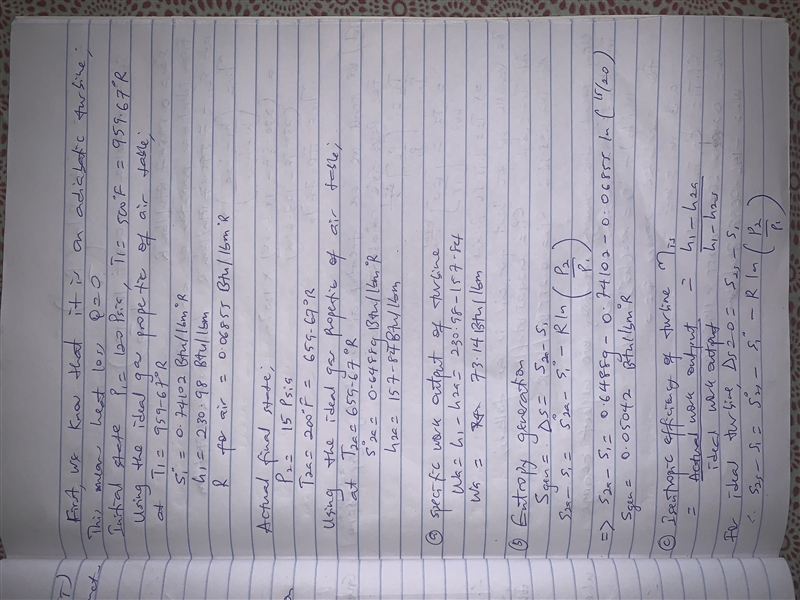 First, we know that it is an adiabatic turbine;
This mean heat loss, Q=0
Initial state P₁ = 120 Psia, T₁ = 500°F = 959.67°R
Using the ideal gas properties of air table;
at T₁ = 959.67°R
S₁° = 0.74102 Btu/lbm°R
h₁ = 230.98 Btu/lbm
R for air = 0.06855 Btu/lbm°R
Actual final state;
P₂ = 15 Psia
T₂ₐ = 200°F = 659.67°R
Using the ideal gas properties of air table;
at T₂ₐ = 659.67°R
S°₂ₐ = 0.64889 Btu/lbm°R
h₂ₐ = 157.84 Btu/lbm
(a) specific work output of turbine
Wa = h₁ - h₂ₐ = 230.98 - 157.84
Wa = 73.14 Btu/lbm
(b) Entropy generation
Sgen = ΔS = S₂ₐ - S₁
S₂ₐ - S₁ = S°₂ₐ - S₁° - R ln (P₂/P₁)
=> S₂ₐ - S₁ = 0.64889 - 0.74102 - 0.06855 ln (15/120)
Sgen = 0.05042 Btu/lbm°R
(c) Isentropic efficiency of turbine ηTs
= Actual work output / ideal work output = h₁ - h₂ₐ / h₁ - h₂s
For ideal turbine, ΔS = 0 = S₂s - S₁
∴ S₂s - S₁ = S°₂s - S₁° - R ln (P₂/P₁)
T)